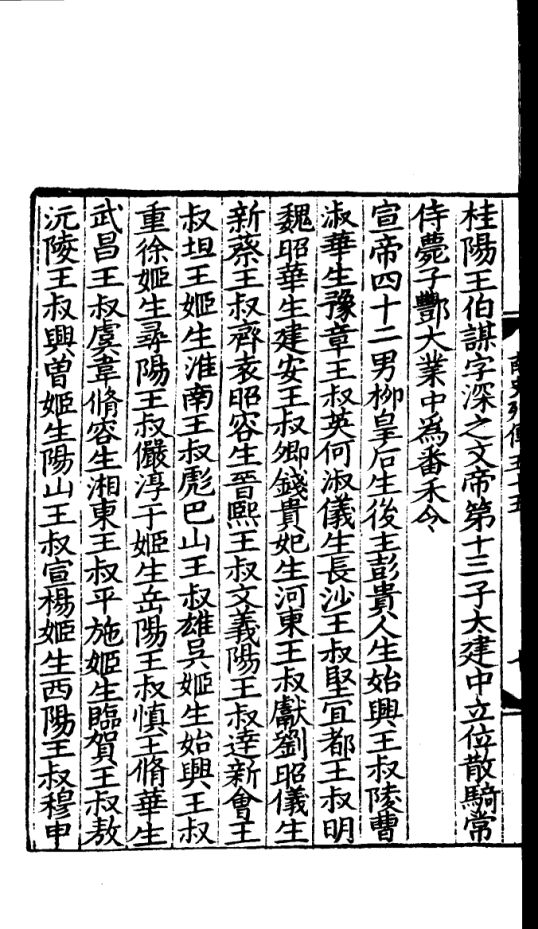 南史列傳五十五
桂陽王伯謀字深之文帝第十三子大建中立位散騎常
侍薨子酆大業中爲番禾令
宣帝四十二男柳皇后生後主彭貴人生始興王叔陵曹
淑華生豫章王叔英何淑儀生長沙王叔堅宜都王叔明
魏昭華生建安王叔卿錢貴妃生河東王叔獻劉昭儀生
新蔡王叔齊袁昭容生晉熙王叔文義陽王叔達新會王
叔坦王姬生淮南王叔彪巴山王叔雄吳姬生始興王叔
重徐姬生尋陽王叔儼淳于姬生岳陽王叔慎王脩華生
武昌王叔虞韋脩容生湘東王叔平施姬生臨賀王叔敖
沅陵王叔興曽姬生陽山王叔宣楊姬生西陽王叔穆申